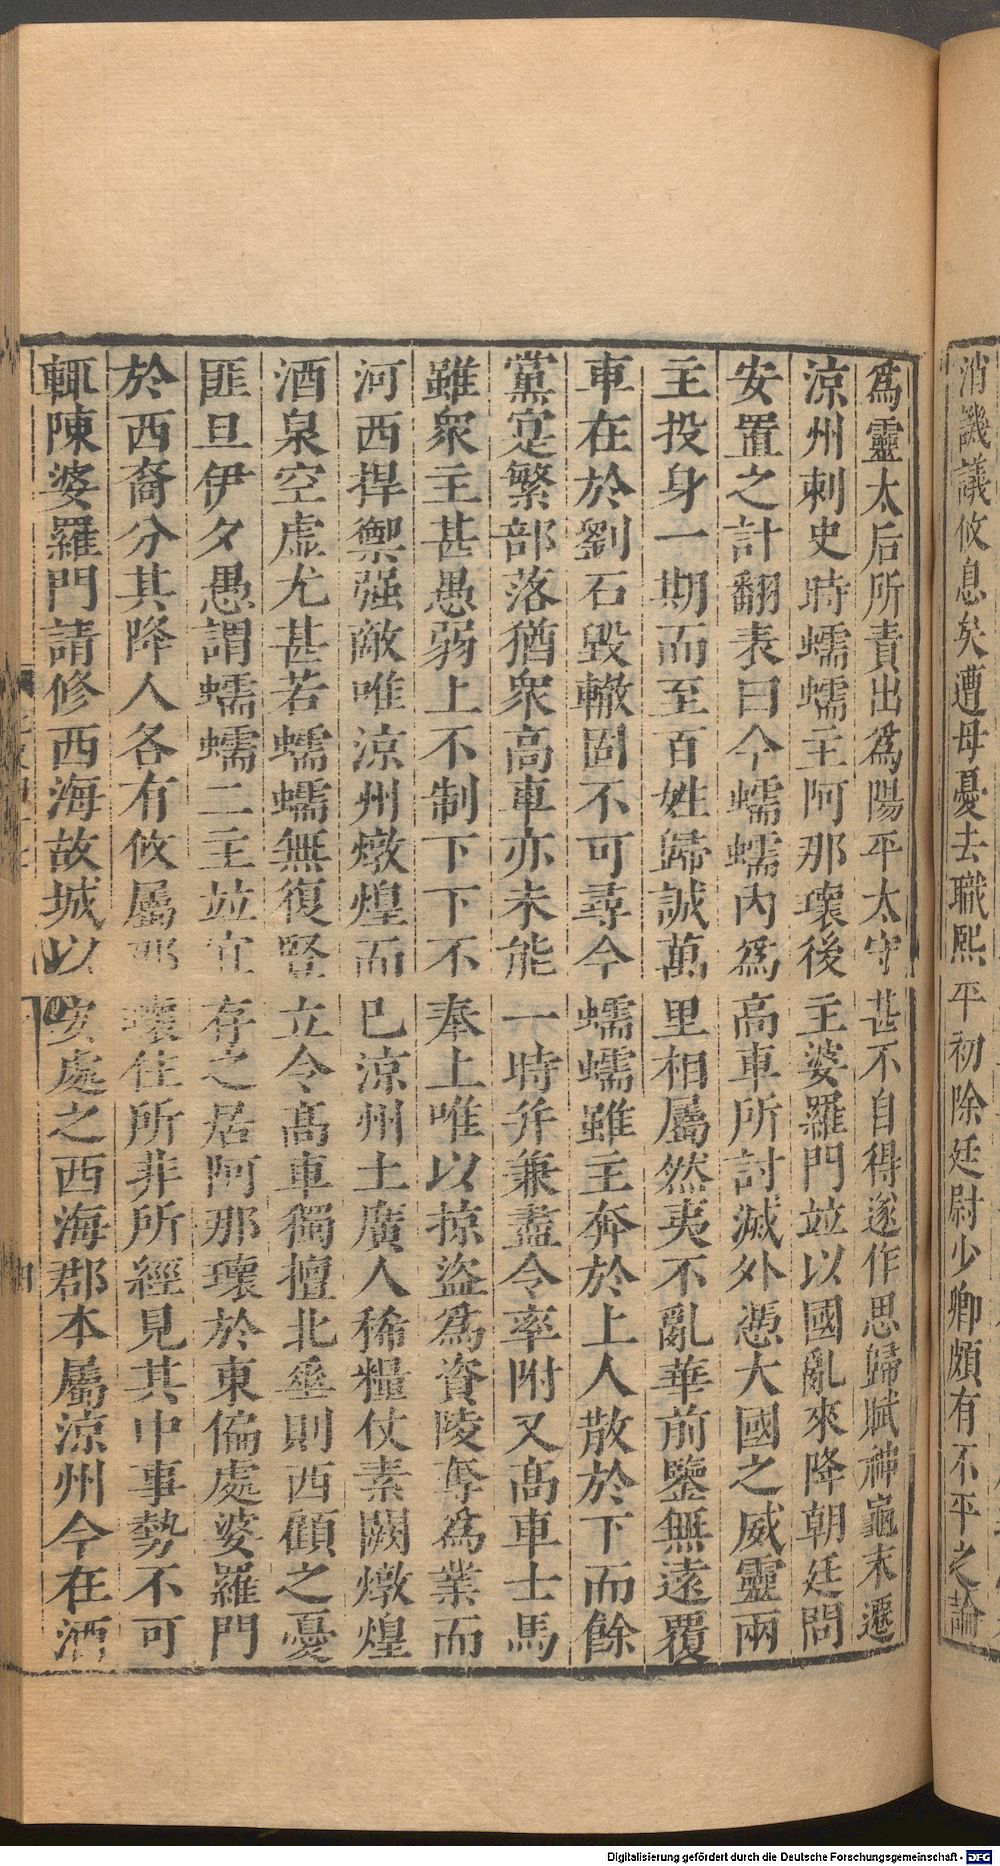 消譏議攸息矣遭母憂去職熙平初除廷尉少卿頗有不平之論
爲靈太后所責出爲陽平太守甚不自得遂作思歸賦神龜末遷
涼州刺史時蠕蠕主阿那瓌後主婆羅門竝以國亂來降朝廷問
安置之計翻表曰今蠕蠕內爲高車所討滅外憑大國之威靈兩
主投身一期而至百姓歸誠萬里相屬然夷不亂華前鑒無遠覆
車在於劉石毀轍固不可尋今蠕蠕雖主奔於上人散於下而餘
黨寔繁部落猶衆高車亦未能一時并兼盡令率附又高車士馬
雖衆主甚愚弱上不制下下不奉上唯以掠盜爲資陵奪爲業而
河西捍禦强敵唯涼州燉煌而已涼州土廣人稀糧仗素闕燉煌
酒泉空虛尤甚若蠕蠕無復豎立令高車獨擅北垂則西顧之憂
匪旦伊夕愚謂蠕蠕二主竝宜存之居阿那瓌於東偏處婆羅門
於西裔分其降人各有攸屬那瓌住所非所經見其中事勢不可
輒陳婆羅門請修西海故城以安處之西海郡本屬涼州今在酒
Digitalisierung gefördert durch die Deutsche Forschungsgemeinschaft - DFG